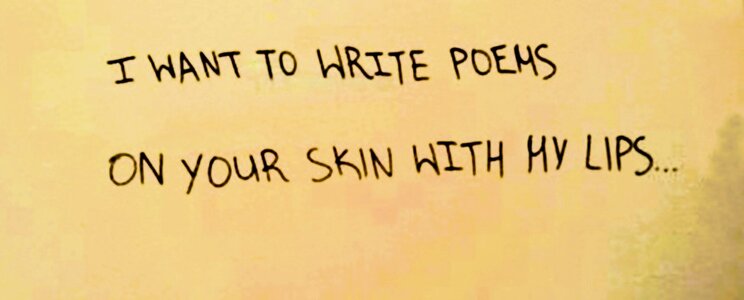 I WANT TO WRITE POEMS
ON YOUR SKIN WITH MY LIPS...